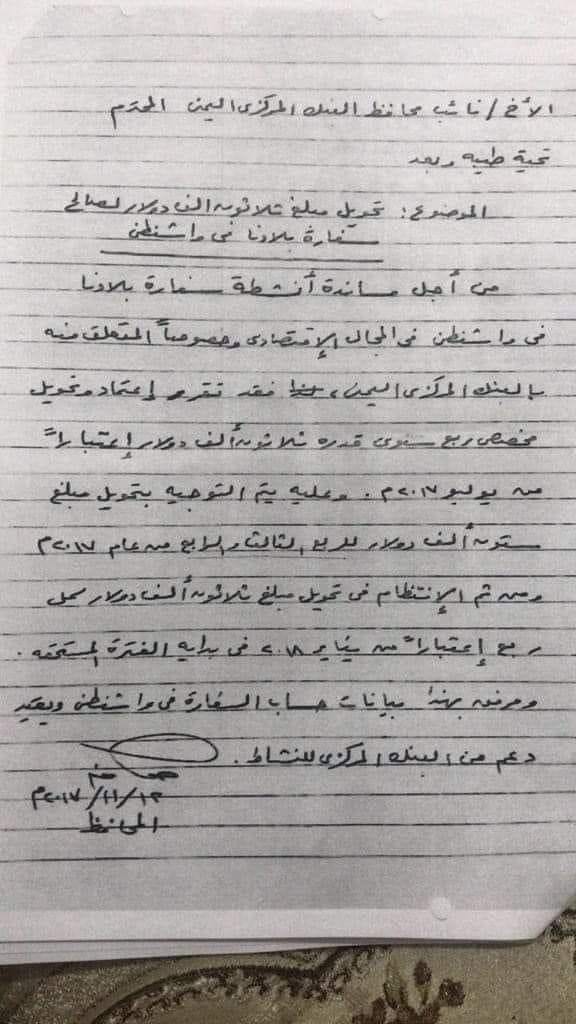 الأخ/ نائب محافظ البنك المركزي اليمني المحترم
تحية طيبه وبعد
الموضوع: تحويل مبلغ ثلاثون الف دولار لصالح
سفارة بلادنا في واشنطن
من أجل مساندة أنشطة سفارة بلادنا
في واشنطن في المجال الإقتصادي وخصوصاً المتعلق منه
بالبنك المركزي اليمني، فقد تقرر إعتماد وتحويل
مخصص ربع سنوي قدره ثلاثون ألف دولار إعتباراً
من يوليو ٢٠١٧م. وعليه يتم التوجيه بتحويل مبلغ
ستون ألف دولار للربع الثالث والرابع من عام ٢٠١٧م
ومن ثم الإنتظام في تحويل مبلغ ثلاثون ألف دولار لكل
ربع إعتباراً من يناير ٢٠١٨ في بداية الفترة المستحقه.
ومرفق بهذا بيانات حساب السفارة في واشنطن ويقيد
دعم من البنك المركزي للنشاط.
١٢/١١/٢٠١٧م
المحافظ